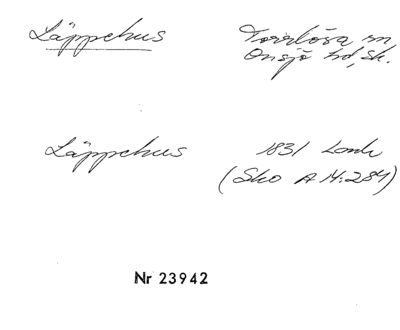 Läppehus Torrlösa sn
Onsjö hd, Sk.
Läppehus 1831 Lantm
(Sko A 14:284)
Nr 23942